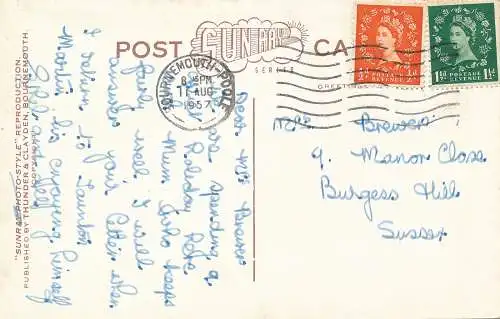 POST CARD
SUNRAY
SERIES
GREETINGS
BOURNEMOUTH-POOLE
8 15 PM
11 AUG
1957
½D POSTAGE REVENUE ½D
1½D POSTAGE REVENUE 1½D
"SUNRAY PHOTO-STYLE" REPRODUCTION
PUBLISHED BY THUNDER & CLAYDEN, BOURNEMOUTH.
(COPYRIGHT)
Dear Mrs Brewer
spending a
Holiday here
Mum, who keeps
fairly well I will
answer your letter when
I return to Taunton
Martin his enjoying himself
Mrs. Brewer
9. Manor Close
Burgess Hill
Sussex